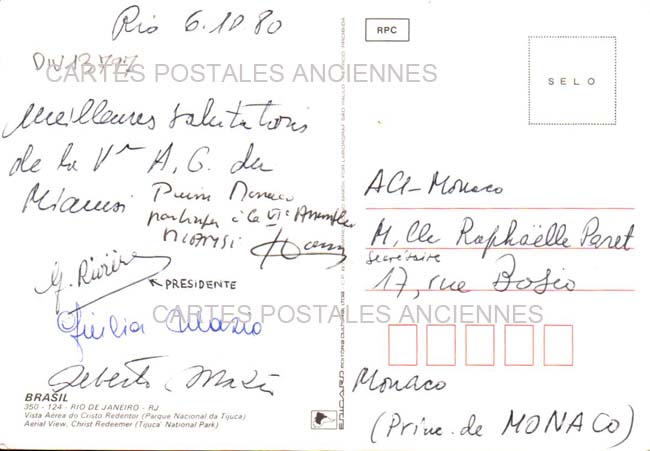 Rio 6.10 80
DIV 13727
CARTES POSTALES ANCIENNES
Meilleures salutations
de la V A. G. du
Miamsi
Monaco
à la VIe
MIAMSI
G. Rivière
PRESIDENTE
CARTES POSTALES ANCIENNES
Giulia
BRASIL
350 - 124 - RIO DE JANEIRO - RJ
Vista Aérea do Cristo Redentor (Parque Nacional da Tijuca)
Aerial View, Christ Redeemer (Tijuca National Park)
EDICARD
RPC
SELO
ACI-Monaco
M.lle Raphaëlle Paret
Secrétaire
17, rue Bosio
Monaco
(Princ. de MONACO)